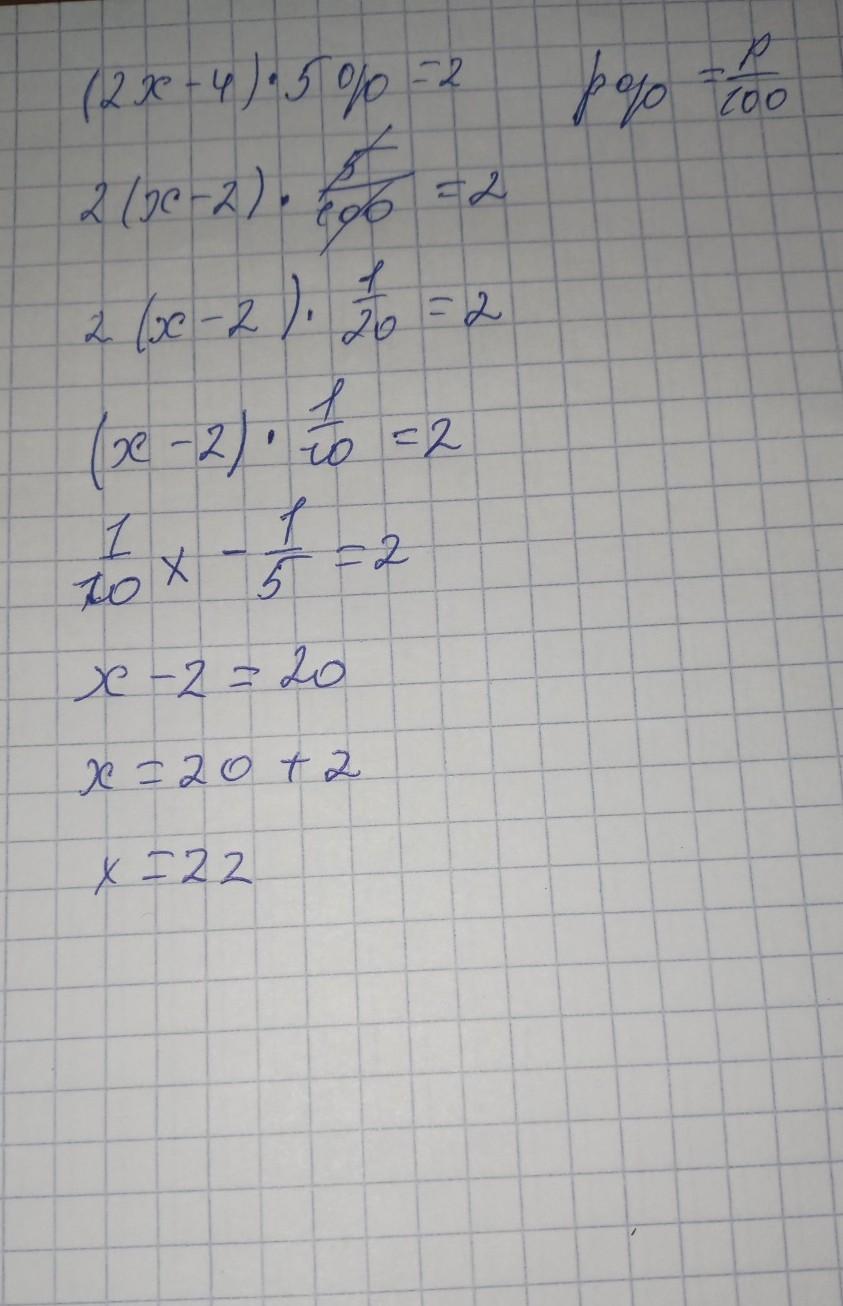 (2x-4)·5%=2 p%=p/100
2(x-2)·5/100=2
2(x-2)·1/20=2
(x-2)·1/10=2
1/10x-1/5=2
x-2=20
x=20+2
x=22